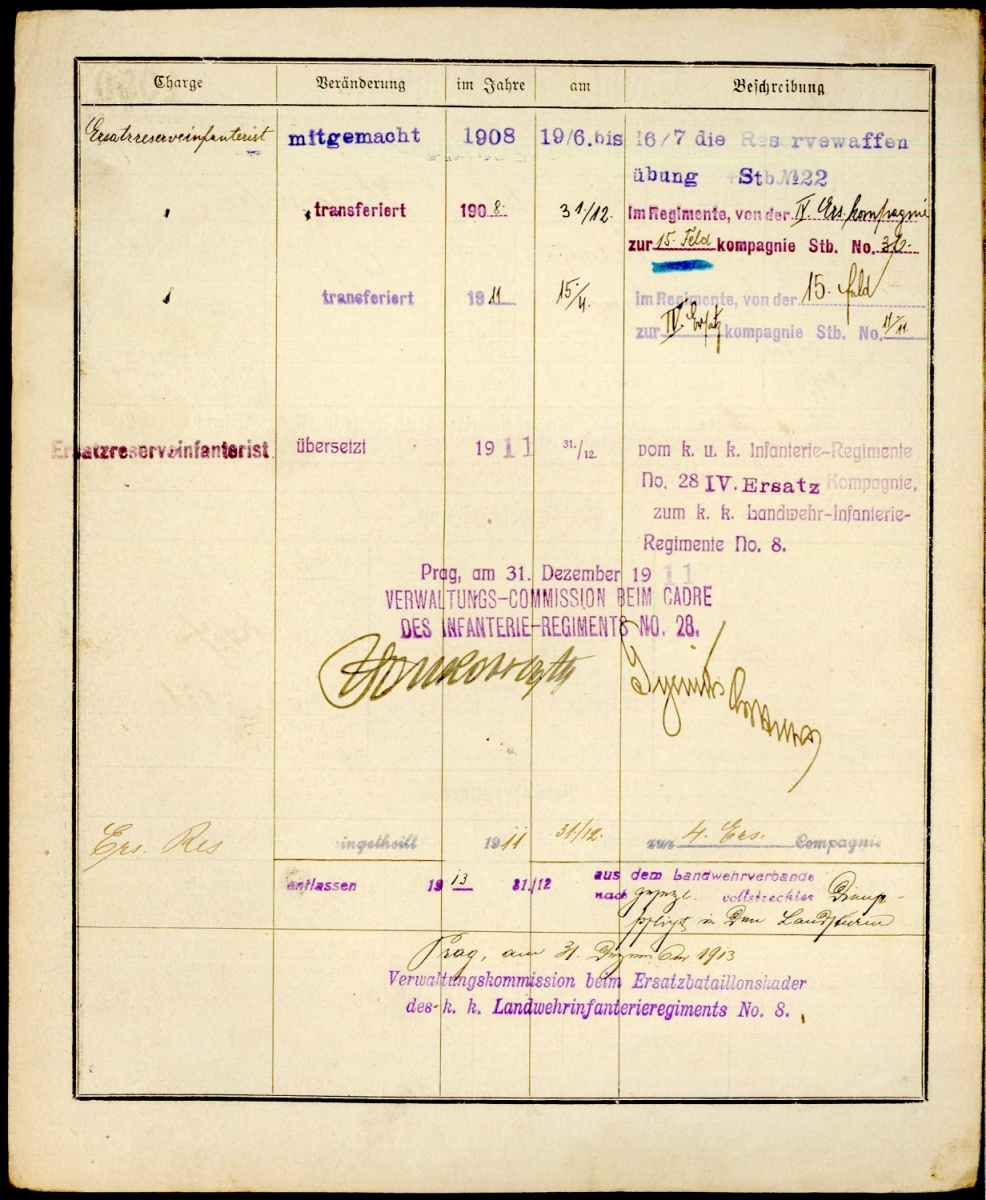 Charge Veränderung im Jahre am Beschreibung
Ersatzreserveinfanterist mitgemacht 1908 19/6. bis 16/7 die Reservewaffen
übung Stb.№22
" transferiert 1908. 31/12. im Regimente, von der IV. Ers. kompagnie
zur 15. Feld kompagnie Stb. No.
" transferiert 1911 15/4. im Regimente, von der 15. feld
zur IV. Ersatz kompagnie Stb. No. 11/11.
Ersatzreserveinfanterist übersetzt 1911 31./12. vom k. u. k. Infanterie-Regimente
No. 28 IV. Ersatz Kompagnie,
zum k. k. Landwehr-Infanterie-
Regimente No. 8.
Prag, am 31. Dezember 1911
VERWALTUNGS-COMMISSION BEIM CADRE
DES INFANTERIE-REGIMENTS NO. 28.
Ers. Res eingetheilt 1911 31./12. zur 4. Ers. Compagnie
entlassen 1913 31./12 aus dem Landwehrverbande
nach vollstreckter Dienst-
pflicht in den Landsturm
Prag, am 31. Dezember 1913
Verwaltungskommission beim Ersatzbataillonskader
des k. k. Landwehrinfanterieregiments No. 8.